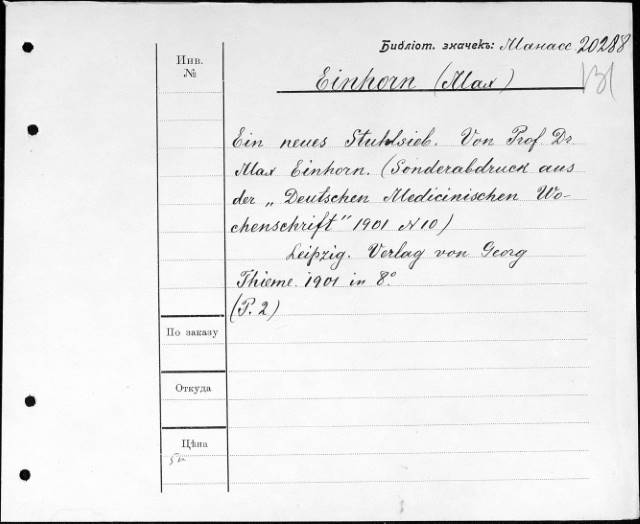 Библіот. значекъ: Манасс. 20288
Инв.
№
Einhorn (Max)
Ein neues Stuhlsieb. Von Prof Dr
Max Einhorn. (Sonderabdruck aus
der „Deutschen Medicinischen Wo-
chenschrift" 1901 N 10)
Leipzig. Verlag von Georg
Thieme. 1901 in 8°
(P. 2)
По заказу
Откуда
Цѣна